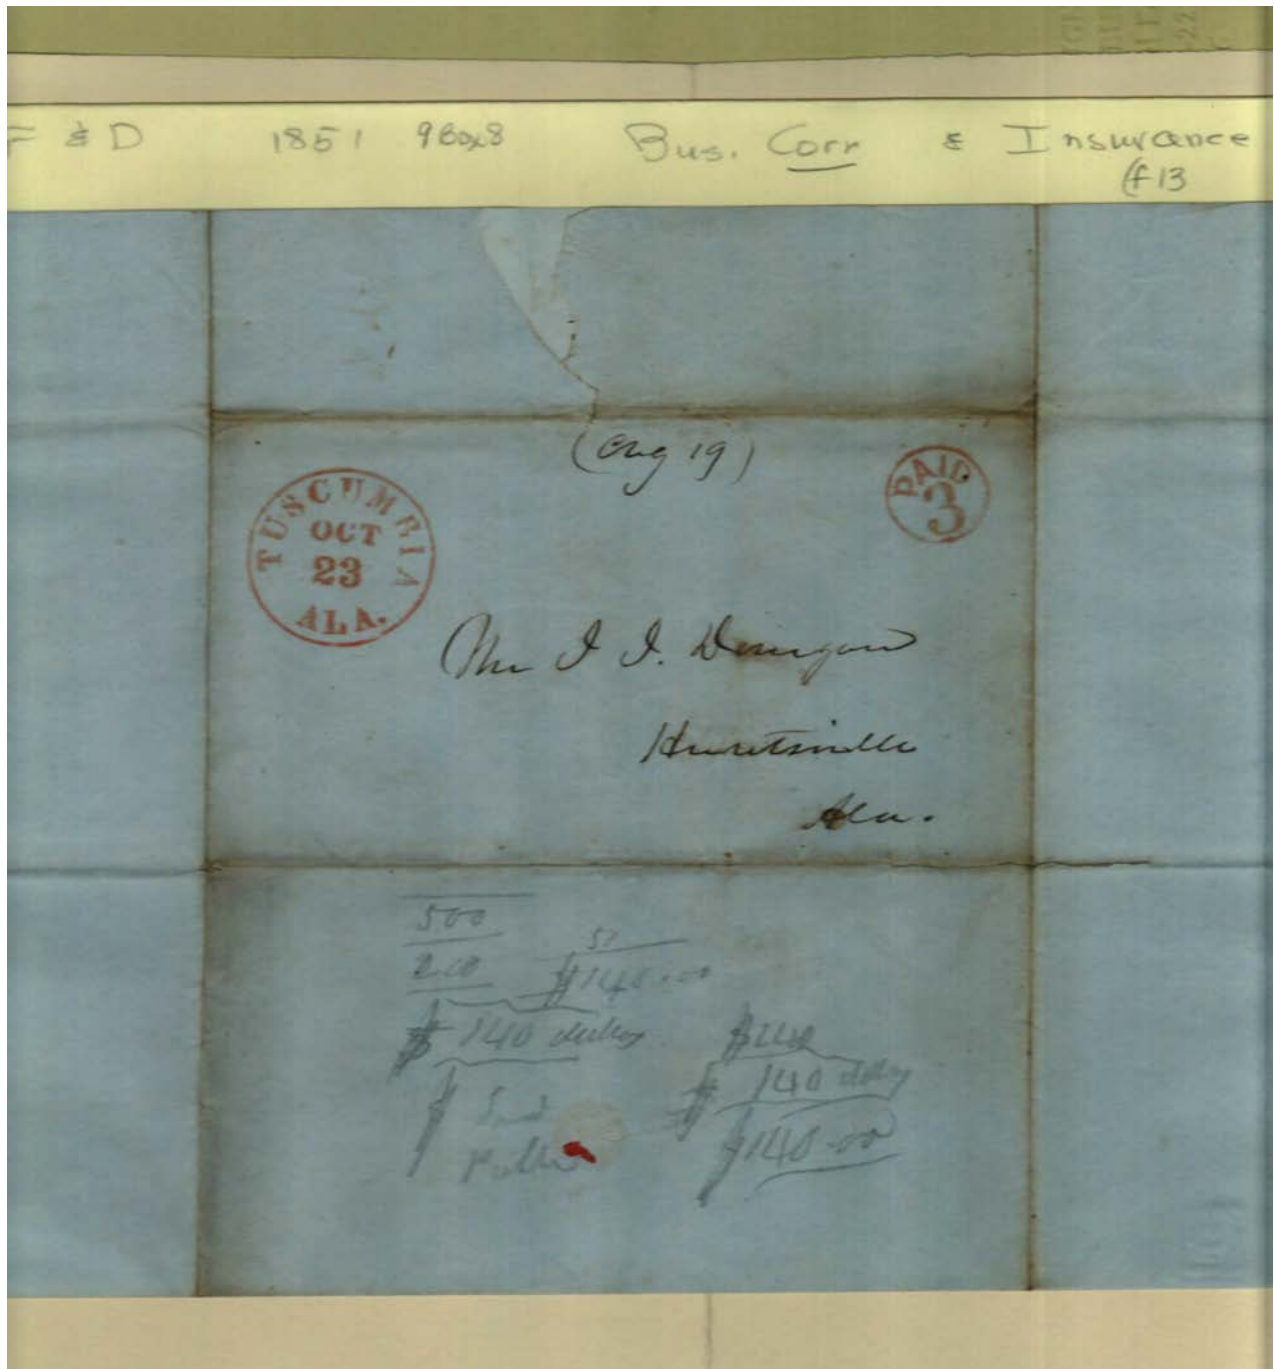 F & D 1851 9Box8 Bus. Corr & Insurance
(f13
(Aug 19)
TUSCUMBIA
OCT
23
ALA.
PAID
3
Mr I I. Donegan
Huntsville
Ala.
500
51
$140.00
$ 140 dollars
140 dollars
$140.00